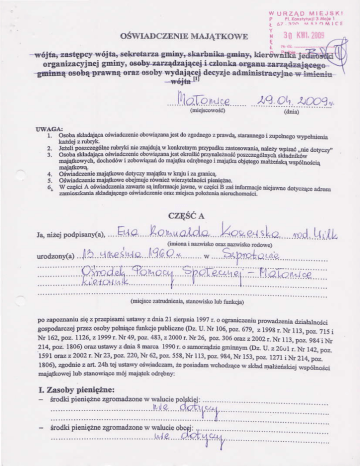 URZĄD MIEJSKI
30 KWI. 2009
OŚWIADCZENIE MAJĄTKOWE
wójta, zastępcy wójta, sekretarza gminy, skarbnika gminy, kierownika jednostki
organizacyjnej gminy, osoby zarządzającej i członka organu zarządzającego
gminną osobą prawną oraz osoby wydającej decyzje administracyjne w imieniu
wójta [1]
Małomice 29.04.2009r
(miejscowość) (dnia)
UWAGA:
1. Osoba składająca oświadczenie obowiązana jest do zgodnego z prawdą, starannego i zupełnego wypełnienia
każdej z rubryk.
2. Jeżeli poszczególne rubryki nie znajdują w konkretnym przypadku zastosowania, należy wpisać „nie dotyczy"
3. Osoba składająca oświadczenie obowiązana jest określić przynależność poszczególnych składników
majątkowych, dochodów i zobowiązań do majątku odrębnego i majątku objętego małżeńską wspólnością
majątkową.
4. Oświadczenie majątkowe dotyczy majątku w kraju i za granicą.
5. Oświadczenie majątkowe obejmuje również wierzytelności pieniężne.
6. W części A oświadczenia zawarte są informacje jawne, w części B zaś informacje niejawne dotyczące adresu
zamieszkania składającego oświadczenie oraz miejsca położenia nieruchomości.
CZĘŚĆ A
Ja, niżej podpisany(a), Ewa Romualda rod
(imiona i nazwisko oraz nazwisko rodowe)
urodzony(a) 13 września 1960r w Szprotawie
Ośrodek Pomocy Społecznej - Małomice
kierownik
(miejsce zatrudnienia, stanowisko lub funkcja)
po zapoznaniu się z przepisami ustawy z dnia 21 sierpnia 1997 r. o ograniczeniu prowadzenia działalności
gospodarczej przez osoby pełniące funkcje publiczne (Dz. U. Nr 106, poz. 679, z 1998 r. Nr 113, poz. 715 i
Nr 162, poz. 1126, z 1999 r. Nr 49, poz. 483, z 2000 r. Nr 26, poz. 306 oraz z 2002 r. Nr 113, poz. 984 i Nr
214, poz. 1806) oraz ustawy z dnia 8 marca 1990 r. o samorządzie gminnym (Dz. U. z 2001 r. Nr 142, poz.
1591 oraz z 2002 r. Nr 23, poz. 220, Nr 62, poz. 558, Nr 113, poz. 984, Nr 153, poz. 1271 i Nr 214, poz.
1806), zgodnie z art. 24h tej ustawy oświadczam, że posiadam wchodzące w skład małżeńskiej wspólności
majątkowej lub stanowiące mój majątek odrębny:
I. Zasoby pieniężne:
– środki pieniężne zgromadzone w walucie polskiej:
nie dotyczy
– środki pieniężne zgromadzone w walucie obcej:
nie dotyczy